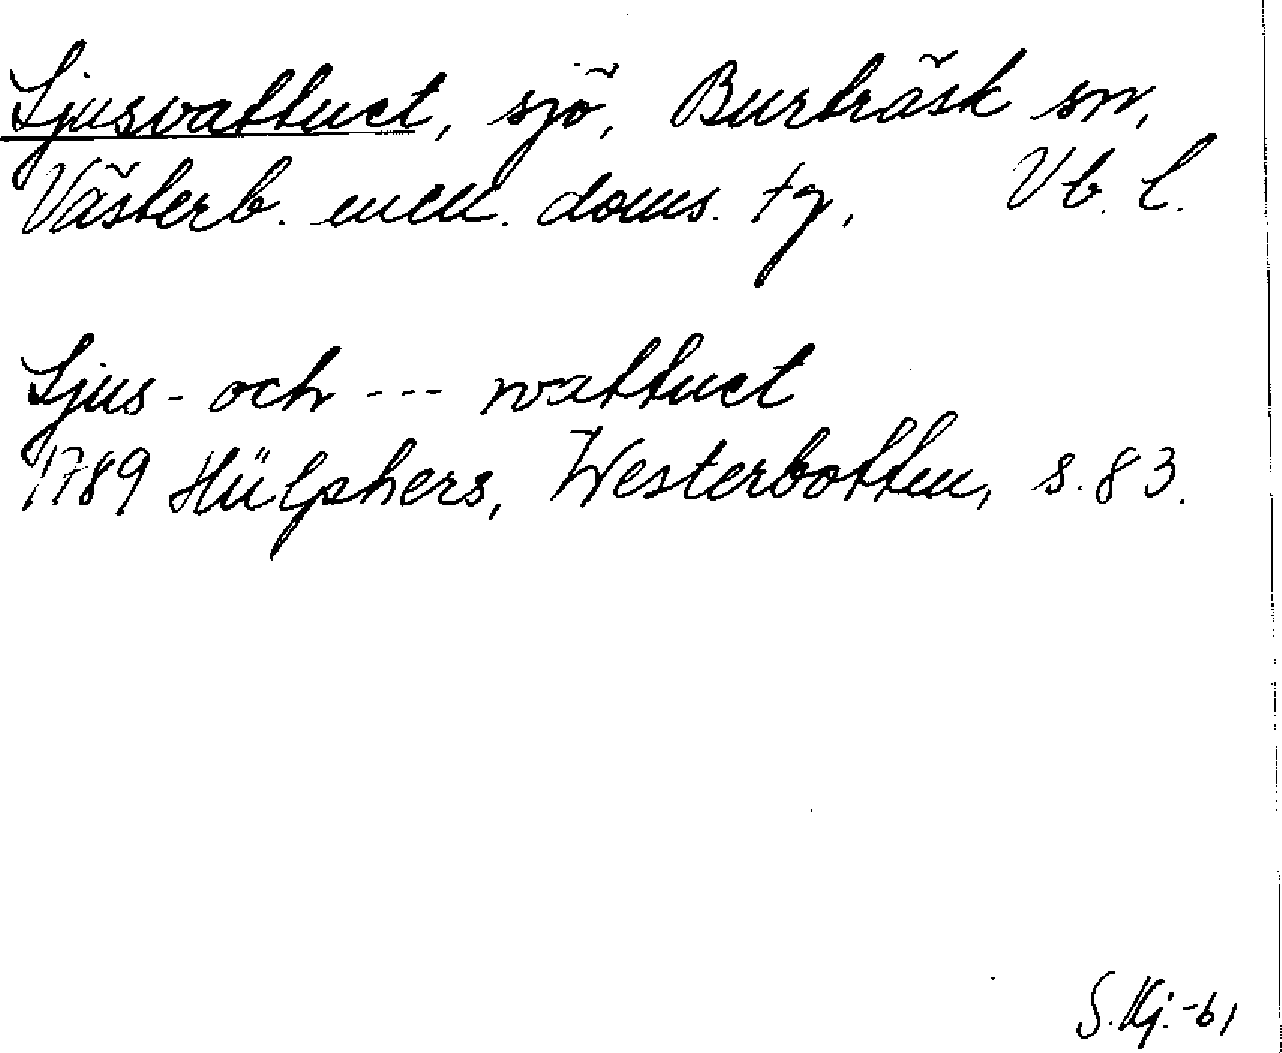 Ljusvattnet, sjö, Burträsk sn,
Västerb. mell. doms. tg, Vb. l.
Ljus- och --- wattnet
1789 Hülphers, Westerbotten, s. 83.
S. Kj. -61